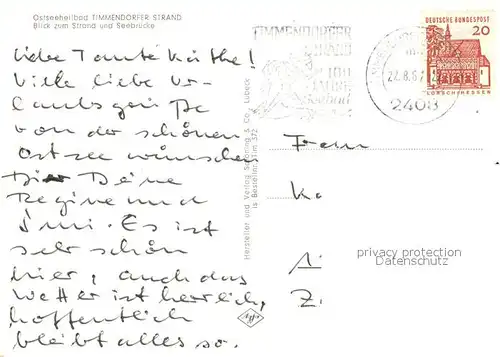 Ostseeheilbad TIMMENDORFER STRAND
Blick zum Strand und Seebrücke
Liebe Tante Käthe!
Viele liebe Ur-
laubsgrüße
von der schönen
Ostsee wünschen
Dir Deine
Regine und
Es ist
sehr schön
hier, auch das
Wetter ist herrlich,
hoffentlich
bleibt alles so.
Hersteller und Verlag Schöning & Co., Lübeck
Bestellnr. Tim 372
TIMMENDORFER
STRAND
100
JAHRE
Seebad
22.8.67
2408
DEUTSCHE BUNDESPOST
20
LORSCH/HESSEN
Frau
K
Z.
privacy protection
Datenschutz
Agfa